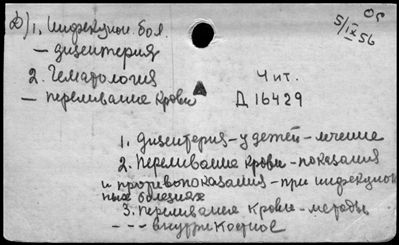 Ор
5/IX 56
д) 1. Инфекцион. бол.
— дизентерия
2. Гематология
— переливание крови
Чит.
Д 16429
1. Дизентерия – у детей – лечение
2. Переливание крови – показания
и противопоказания – при инфекцион
ных болезнях
3. Переливание крови – методы
– – – внутрикостное